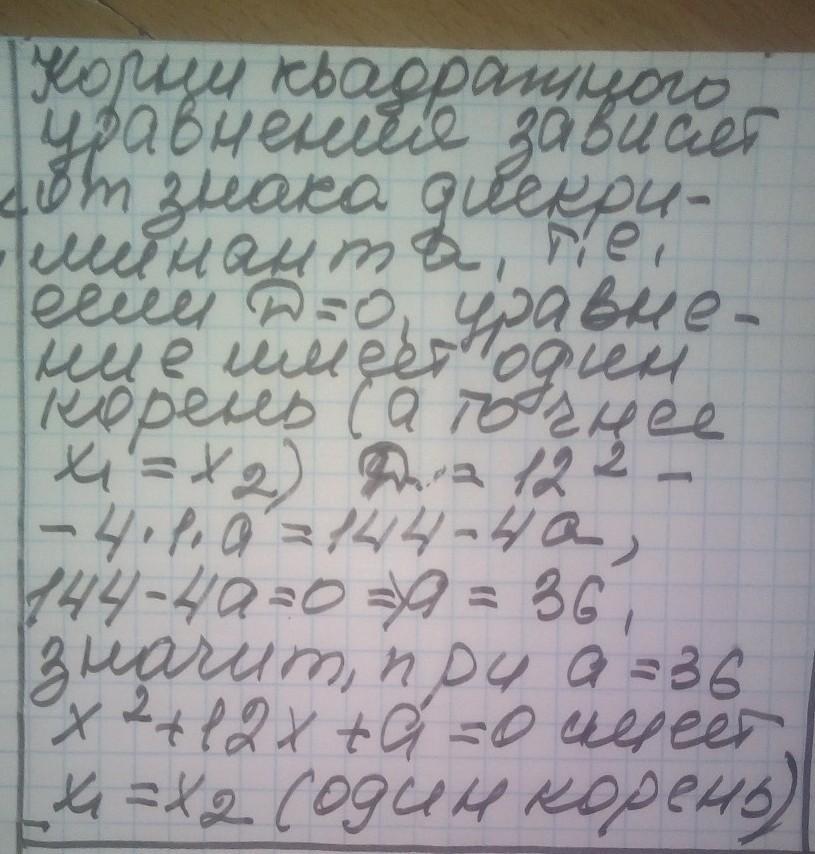 Корни квадратного
уравнения зависят
от знака дискри-
минанта, т.е.
если D=0, уравне-
ние имеет один
корень (а точнее
x₁ = x₂) D = 12² -
- 4·1·a = 144 - 4a,
144-4a=0 => a = 36,
значит, при a = 36
x² + 12x + a = 0 имеет
x₁ = x₂ (один корень)